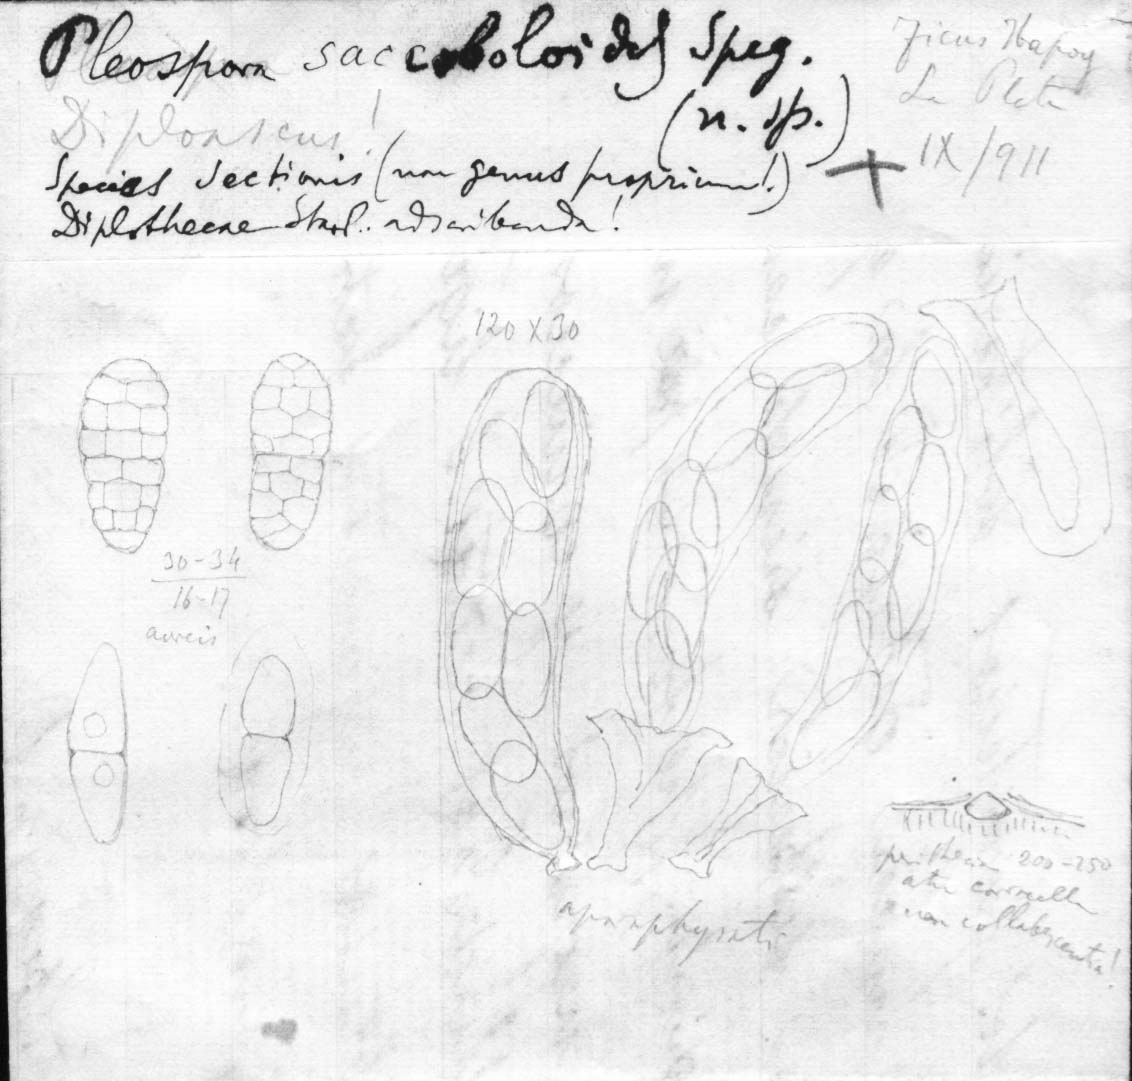 Pleospora saccoboloides Speg.
(n. sp.)
Ficus
La Plata
IX/911
Species sectionis (non genus proprium!)
Diplothecae Starb. adscribenda!
120 X 30
30-34
16-17
aureis
aparaphysatis
perithecia 200-250
atra coriacella
non collabescentia!